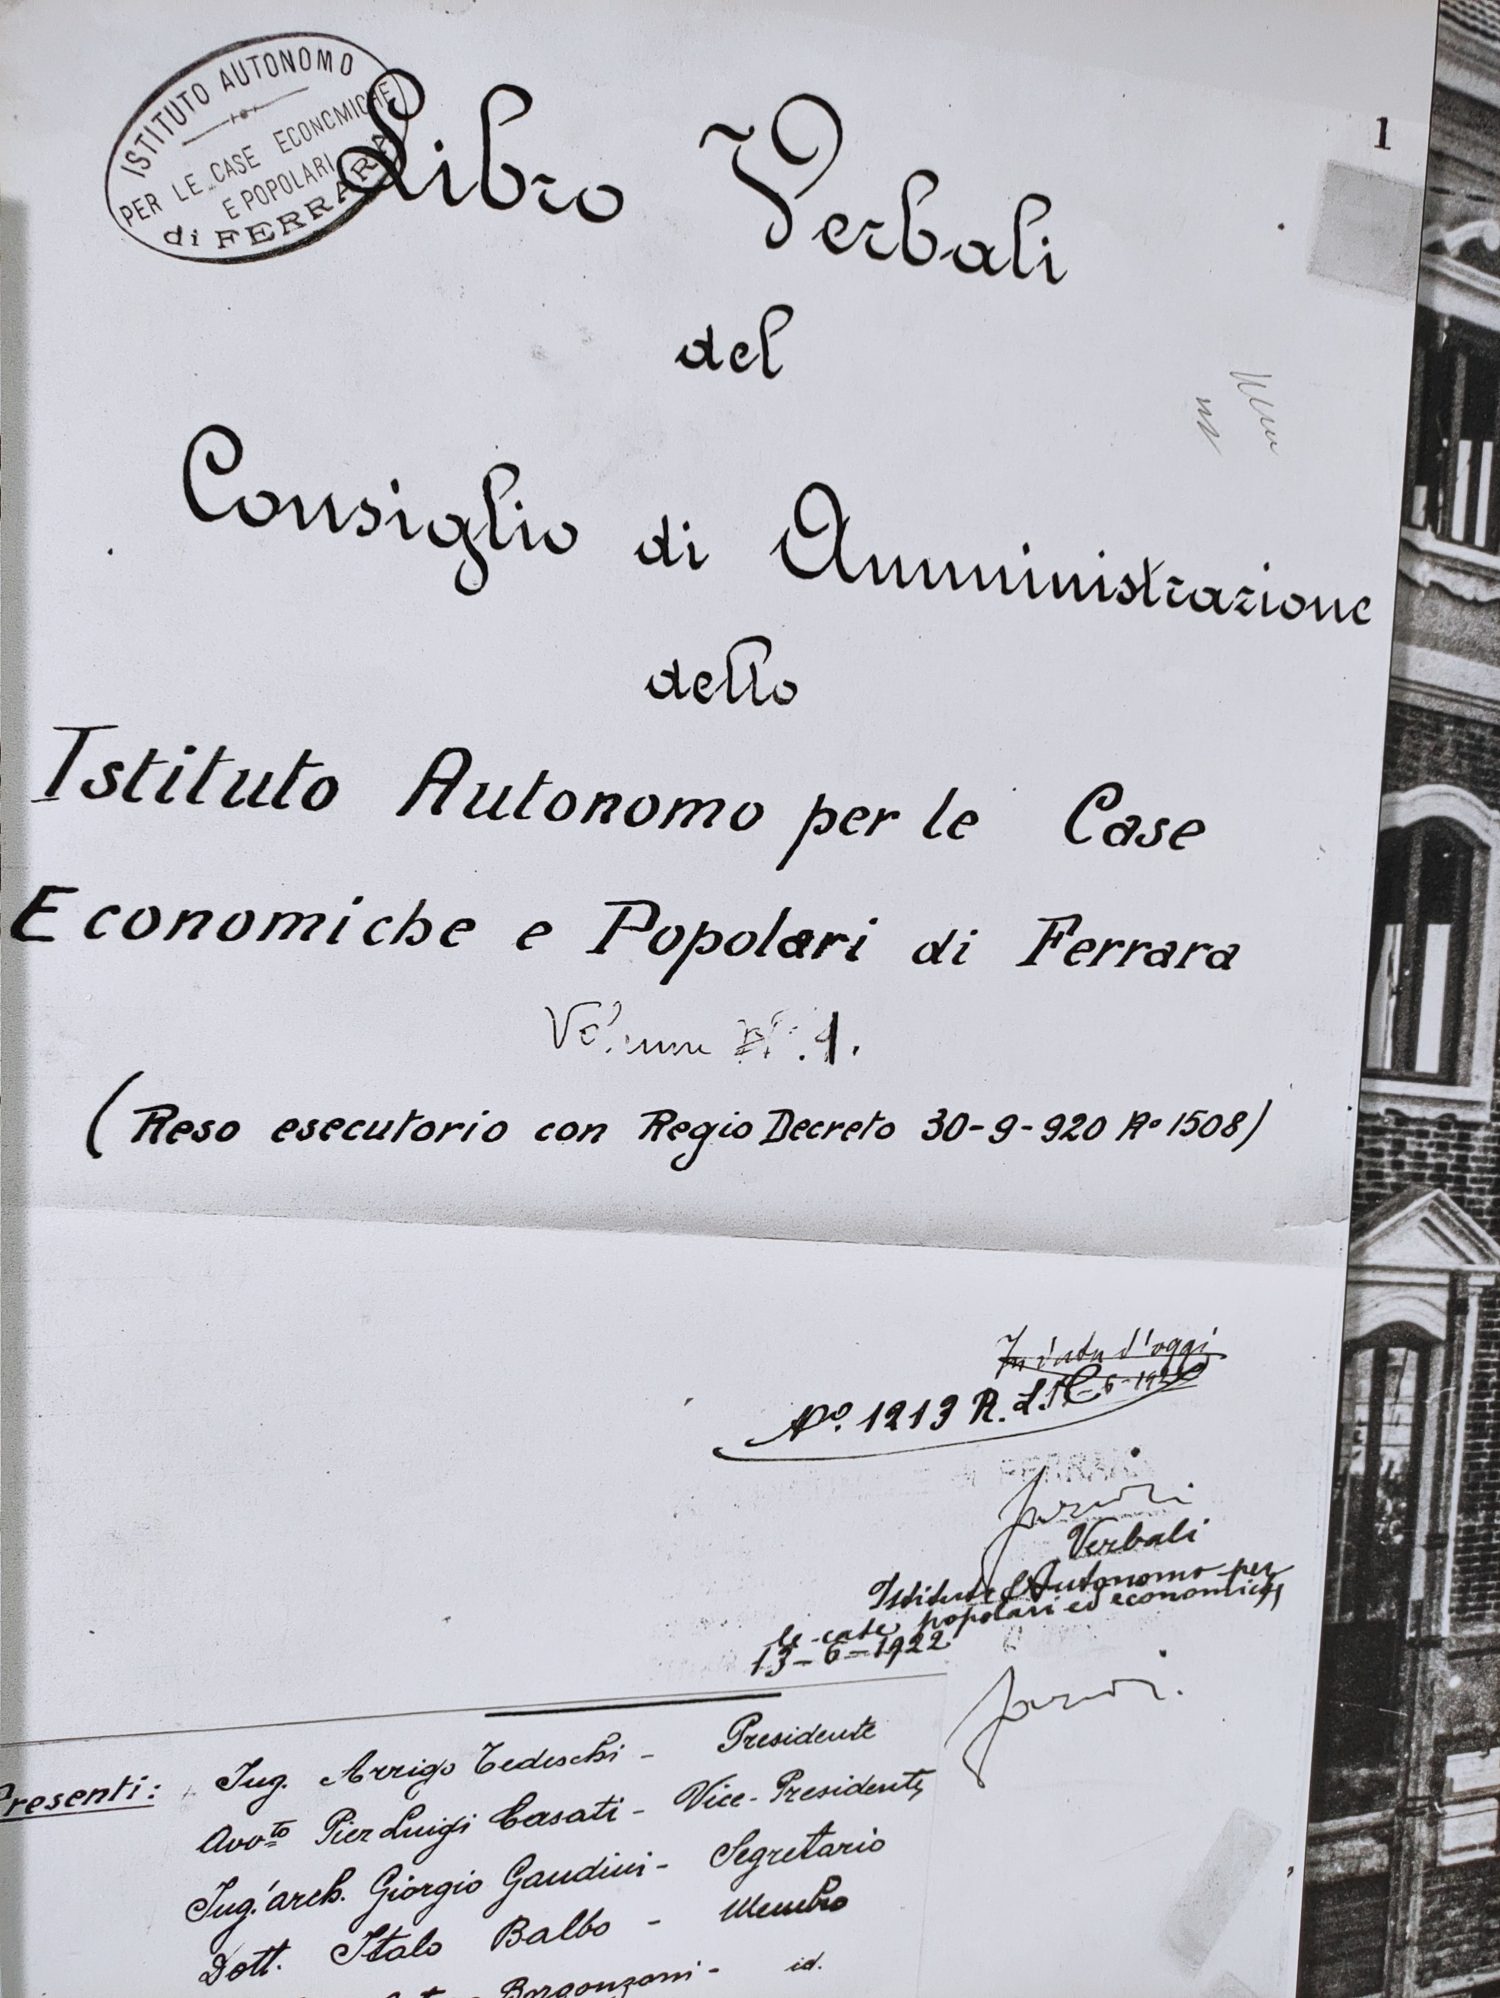 ISTITUTO AUTONOMO
PER LE CASE ECONOMICHE
E POPOLARI
di FERRARA
1
Libro Verbali
del
Consiglio di Amministrazione
dello
Istituto Autonomo per le Case
Economiche e Popolari di Ferrara
Volume N° 1.
(Reso esecutorio con Regio Decreto 30-9-920 N° 1508)
In data d'oggi
N°. 1213 R.
FERRARA
Verbali
Istituto Autonomo per
le case popolari ed economiche
13-6-1922
Presenti: Ing. Arrigo Tedeschi - Presidente
Avv.to Pier Luigi Casati - Vice-Presidente
Ing. arch. Giorgio Gaudini - Segretario
Dott. Italo Balbo - Membro
Borgonzoni - id.